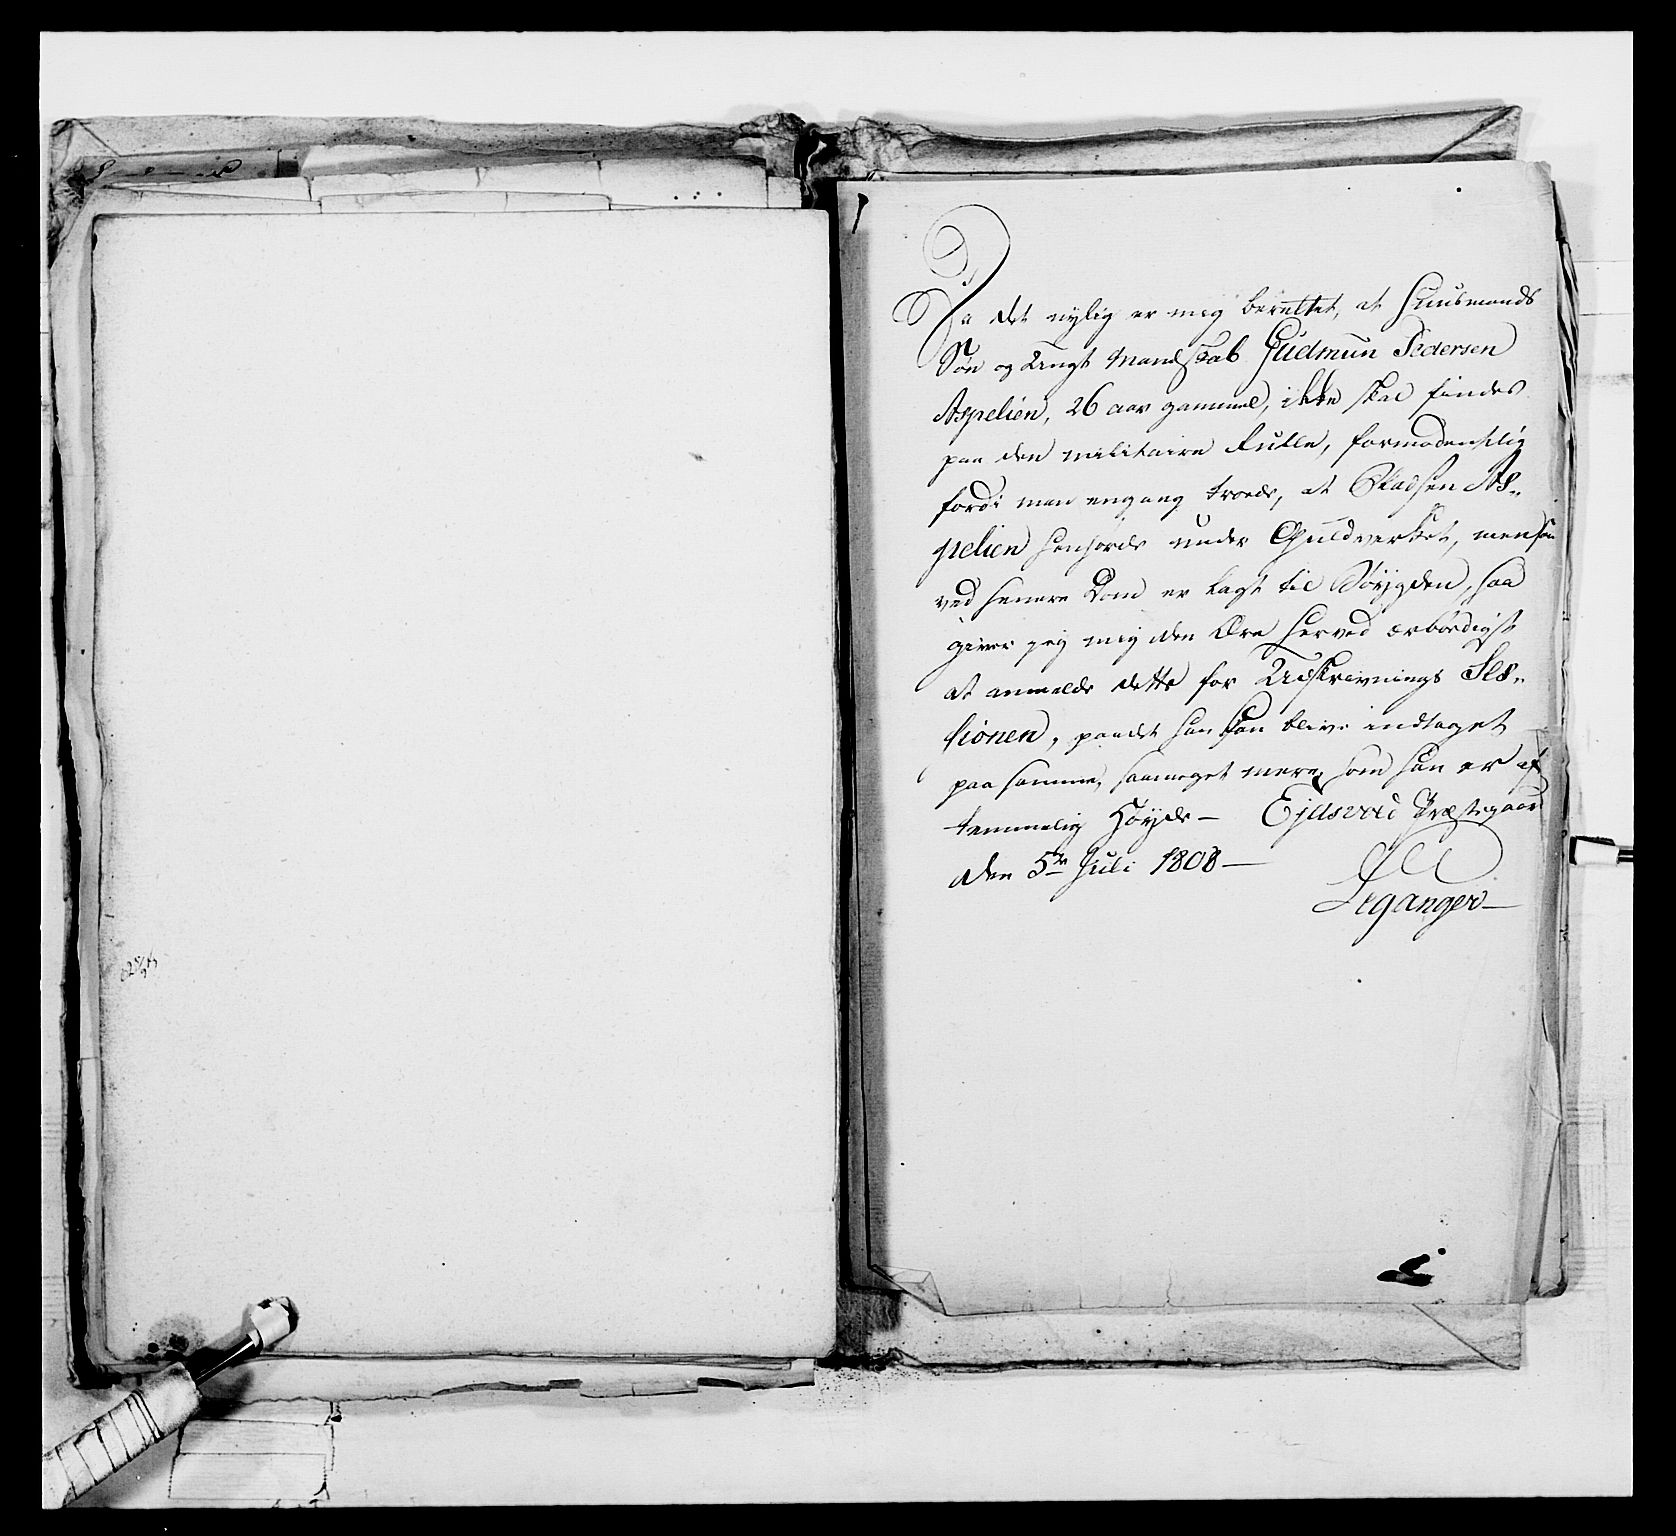 Da det nylig er mig berettet, at Huusmands
Søn og Ungt Mandskab Gudmun Pedersen
Aspelien, 26 aar gammel, ikke skal findes
paa den militaire Rulle, formodentlig
fordi man engang troede, at Pladsen As„
pelien henhørde under Guldverket, men som
ved senere Dom er lagt til Bøygden, saa
giver jeg mig den Ære herved ærbødigst
at anmelde dette for Udskrivnings Ses„
sionen, paadet han kan blive indtaget
paa samme, saameget mere, som han er af
temmelig Høyde — Ejdsvold Præstegaard
den 5te Juli 1808 —
Leganger —